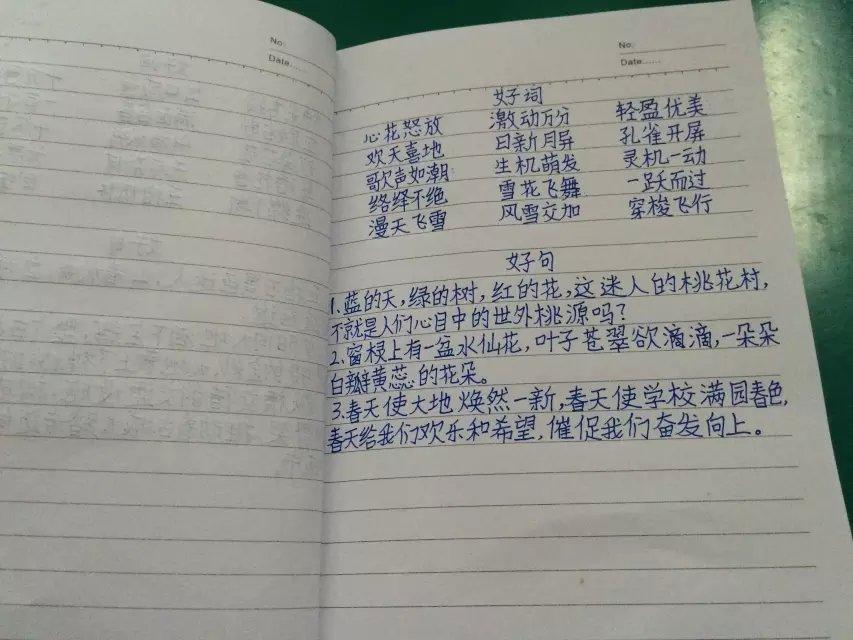 No:
Date......
No:
Date......
好词
心花怒放 激动万分 轻盈优美
欢天喜地 日新月异 孔雀开屏
歌欢声如潮 生机萌发 灵机一动
络绎不绝 雪花飞舞 一跃而过
漫天飞雪 风雪交加 穿梭飞行
好句
1.蓝的天,绿的树,红的花,这迷人的桃花村,
不就是人们心目中的世外桃源吗?
2.窗棂上有一盆水仙花,叶子苍翠欲滴滴,一朵朵
白瓣黄蕊的花朵。
3.春天使大地焕然一新,春天使学校满园春色,
春天给我们欢乐和希望,催促我们奋发向上。